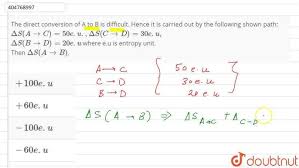 404768997
The direct conversion of A to B is difficult. Hence it is carried out by the following shown path:
ΔS(A → C) = 50e. u. , ΔS(C → D) = 30e. u,
ΔS(B → D) = 20e. u where e.u is entropy unit.
Then ΔS(A → B).
+100e. u
+60e. u
−100e. u
−60e. u
A → C 50 e.u
C → D 30 e.u
B → D 20 e.u
ΔS (A → B) ⇒ ΔS A→C + Δ C→D
doubtnut